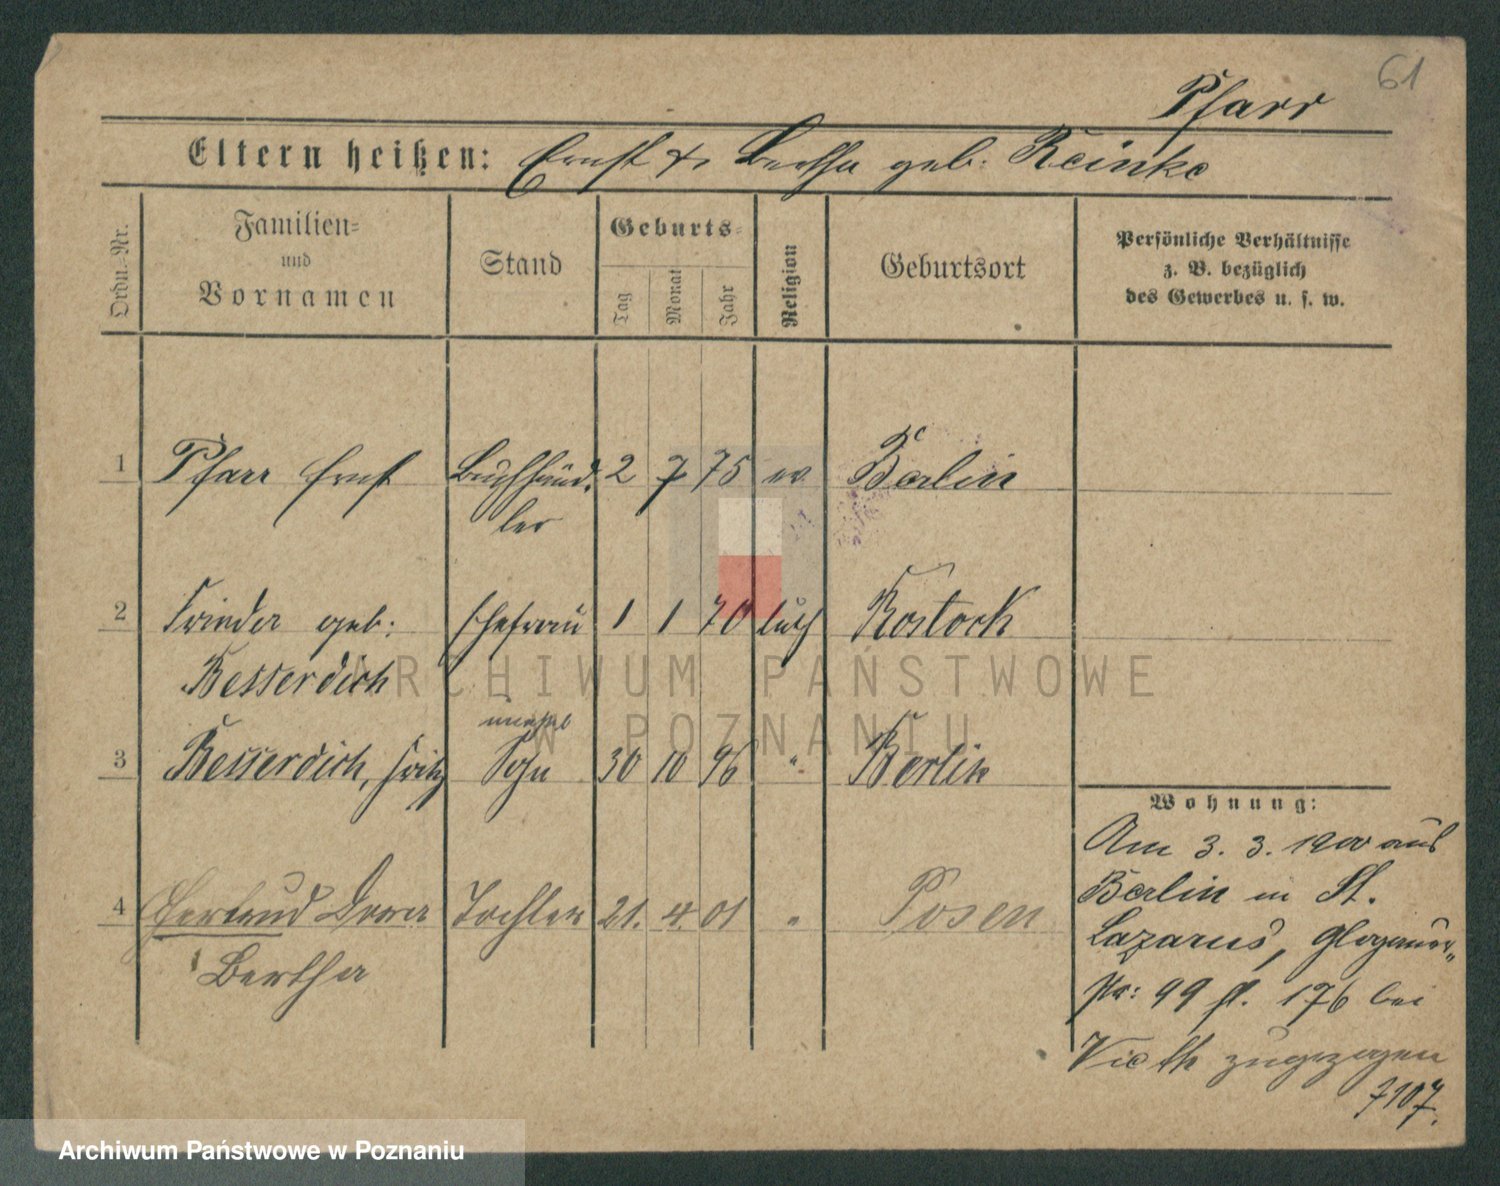 61
Pfarr
Eltern heißen: Ernst & Bertha geb. Reinke
Ordn.-Nr.
Familien-
und
Vornamen
Stand
Geburts-
Tag
Monat
Jahr
Religion
Geburtsort
Persönliche Verhältnisse
z. B. bezüglich
des Gewerbes u. s. w.
1 Pfarr Ernst Buchhänd- 2 7 75 ev. Berlin
ler
2 Frieda geb: Ehefrau 1 1 70 luth Rostock
Besserdich
unehel
3 Besserdich, Fritz Sohn 30 10 96 " Berlin
4 Gertrud Dora Tochter 21. 4. 01 " Posen
Bertha
Wohnung:
Am 3. 3. 1900 aus
Berlin in St.
Lazarus, Glogauer-
str: 99 fl. 176 bei
Vieth zugezogen
7107.
ARCHIWUM PAŃSTWOWE
W POZNANIU
Archiwum Państwowe w Poznaniu